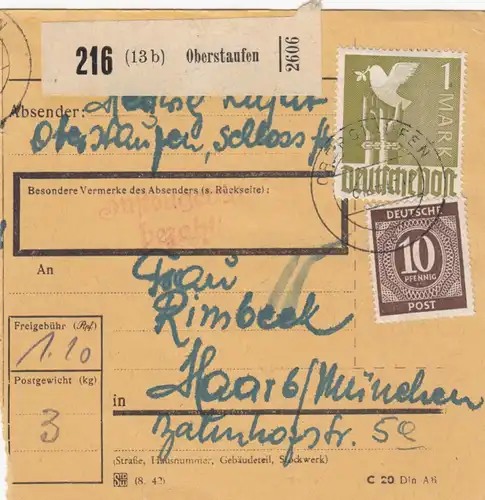 216 (13b) Oberstaufen 2606
1 MARK
Deutsche Post
Absender:
Oberstaufen, Schloss
OBERSTAUFEN
Besondere Vermerke des Absenders (s. Rückseite):
bezahlt
DEUTSCHE
10
PFENNIG
POST
An
Frau
Rimbeck
Freigebühr (Rpf.)
1.10
Haar b/München
Postgewicht (kg)
in
3
Bahnhofstr. 5a
(Straße, Hausnummer, Gebäudeteil, Stockwerk)
(8. 42)
C 20 Din A6